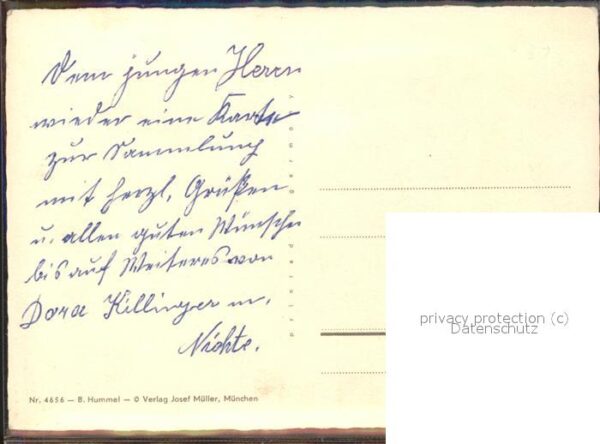 Dem jungen Herrn
wieder eine Karte
zur Sammlung
mit herzl. Grüßen
u. allen guten Wünschen
bis auf Weiteres von
Dora Killinger m.
Nichte.
printed in germany
privacy protection (c)
Datenschutz
Nr. 4656 — B. Hummel — © Verlag Josef Müller, München